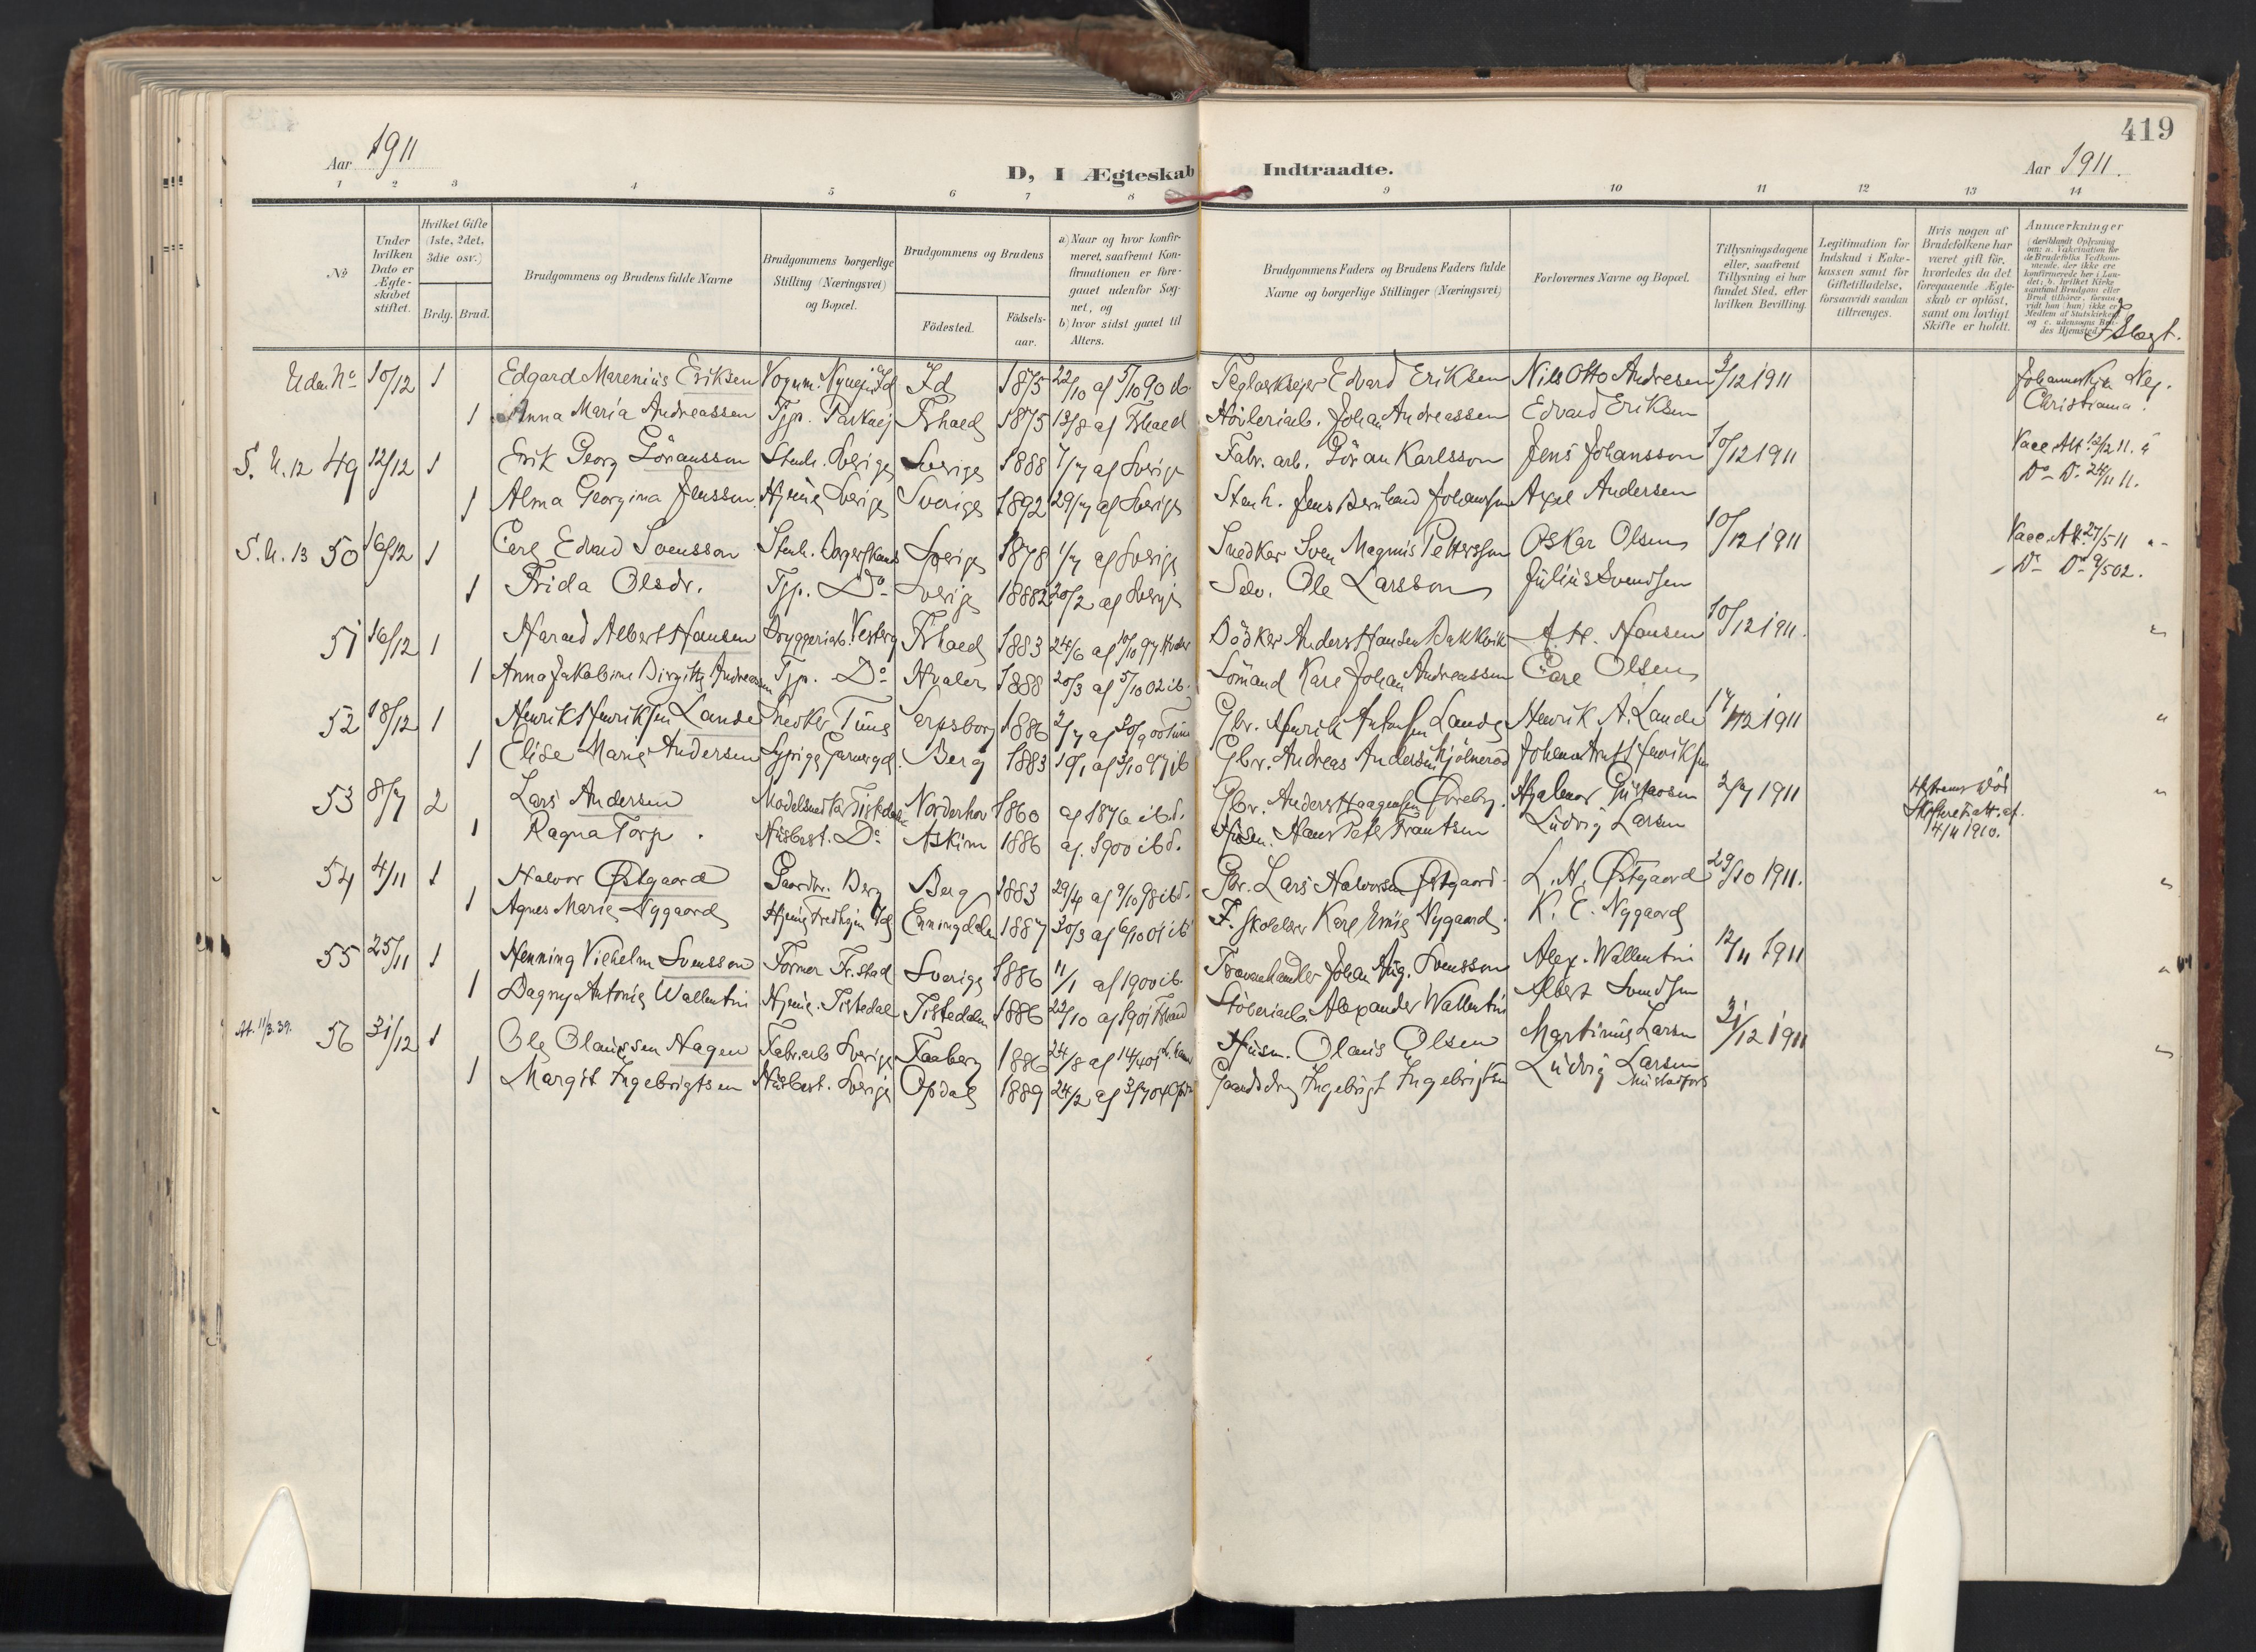 419
Aar 1911
D, I Ægteskab Indtraadte.
Aar 1911.
1 2 3 4 5 6 7 8 9 10 11 12 13 14
No
Under hvilken Dato er Ægteskabet stiftet.
Hvilket Gifte (1ste, 2det, 3die osv.)
Brdg. Brud.
Brudgommens og Brudens fulde Navne
Brudgommens borgerlige Stilling (Næringsvei) og Bopæl.
Brudgommens og Brudens
Födested.
Födselsaar.
a) Naar og hvor konfirmeret, saafremt Konfirmationen er foregaaet udenfor Sognet, og
b) hvor sidst gaaet til Alters.
Brudgommens Faders og Brudens Faders fulde Navne og borgerlige Stillinger (Næringsvei)
Forlovernes Navne og Bopæl.
Tillysningsdagene eller, saafremt Tillysning ei har fundet Sted, efter hvilken Bevilling.
Legitimation for Indskud i Enkekassen samt for Giftetilladelse, forsaavidt saadan tiltrænges.
Hvis nogen af Brudefolkene har været gift för, hvorledes da det foregaaende Ægteskab er oplöst, samt om lovligt Skifte er holdt.
Anmærkninger
Uden No 10/12 1 Edgard Marenius Eriksen Id 1875 22/10 af 5/10 90 ib. Edvard Eriksen Nils Otto Andresen 3/12 1911 Christiania.
1 Anna Maria Andreassen Tjp. Fshald 1875 13/8 af Fshald Johan Andreassen Edvard Eriksen
S. U. 12 49 12/12 1 Erik Georg Göransson Stenh. Sverige Sverige 1888 7/7 af Sverige Fabr. arb. Göran Karlsson Jens Johansson 10/12 1911 Vacc. Att. 12/12 11.
1 Alma Georgina Jensson Hjeme Sverige Sverige 1892 29/7 af Sverige Stenh. Jens Bernhard Johansson Axel Andersen Do D. 24/11 11.
S. U. 13 50 16/12 1 Carl Edvard Svensson Stenh. Sverige 1878 1/7 af Sverige Snedker Sven Magnus Pettersson Oskar Olsen 10/12 1911 Vacc. Att. 27/5 11
1 Frida Olsdr. Tjp. Do Sverige 1888 20/2 af Sverige Selv. Ole Larsson Julius Svendsen Do Do 9/5 02.
51 16/12 1 Harald Albert Hansen Bryggeriarb. Fshald 1883 24/6 af 10/10 97 Bödker Anders Hansen Bakkevik A. H. Hansen 10/12 1911.
1 Anna Jakobine Birgitte Andreassen Tjp. Do Hvaler 1888 20/3 af 5/10 02 ib. Sömand Karl Johan Andreassen Carl Olsen
52 18/12 1 Henrik Henriksen Lande Snedker Tune Sarpsborg 1886 2/7 af 30/9 00 Tune Gbr. Henrik Lande Henrik A. Lande 17/12 1911
1 Elise Marie Andersen Berg 1883 10/1 af 3/10 97 ib Gbr. Andreas Andersen
53 8/7 2 Lars Andersen Modelsnedker Tistedalen Norderhov 1860 af 1876 ibd. Gbr. Anders Haagensen Hjalmar Gustavsen 2/7 1911
1 Ragna Torp. Husbest. Do Askim 1886 af. 1900 ibd. Husm. Hans Peter Frantsen Ludvig Larsen 14/11 1910.
54 4/11 1 Halvor Østgaard Gaardbr. Berg Berg 1883 29/4 af 9/10 98 ibd. Gbr. Lars Halvorsen Østgaard. L. H. Østgaard 29/10 1911.
1 Agnes Marie Nygaard Enningdalen 1887 30/3 af 6/10 01 ib F. Skolelær Karl Emil Nygaard. K. E. Nygaard
55 25/11 1 Henning Vilhelm Svensson Former Fr.stad Sverige 1886 11/1 af 1900 ib. Trævarehandler Johan Aug. Svensson Alex. Wallentin 12/11 1911
1 Dagny Antonie Wallentin Hjeme. Tistedal Tistedalen 1886 22/10 af 1901 Fshald Stöberiarb. Alexander Wallentin Albert Svendsen
At. 11/3.39. 56 31/12 1 Ole Olaussen Hagen Fabr.arb Sverige Faaberg 1886 24/8 af 14/4 01 Husm. Olaus Olsen Martinus Larsen 31/12 1911
1 Margit Ingebrigtsen Husbest. Sverige Opdal 1889 24/2 af 3/7 04 Opdal Ingebrigt Ingebrigtsen Ludvig Larsen
Mustadfors